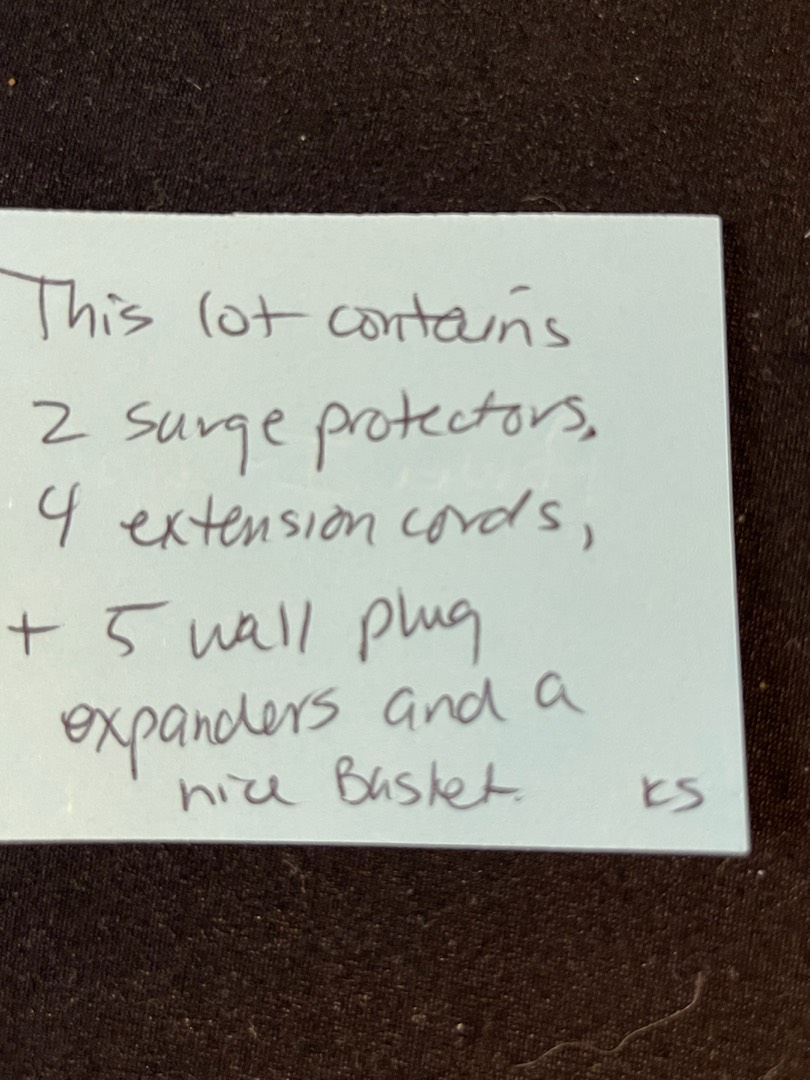 This lot contains
2 surge protectors,
4 extension cords,
+ 5 wall plug
expanders and a
nice Basket. KS